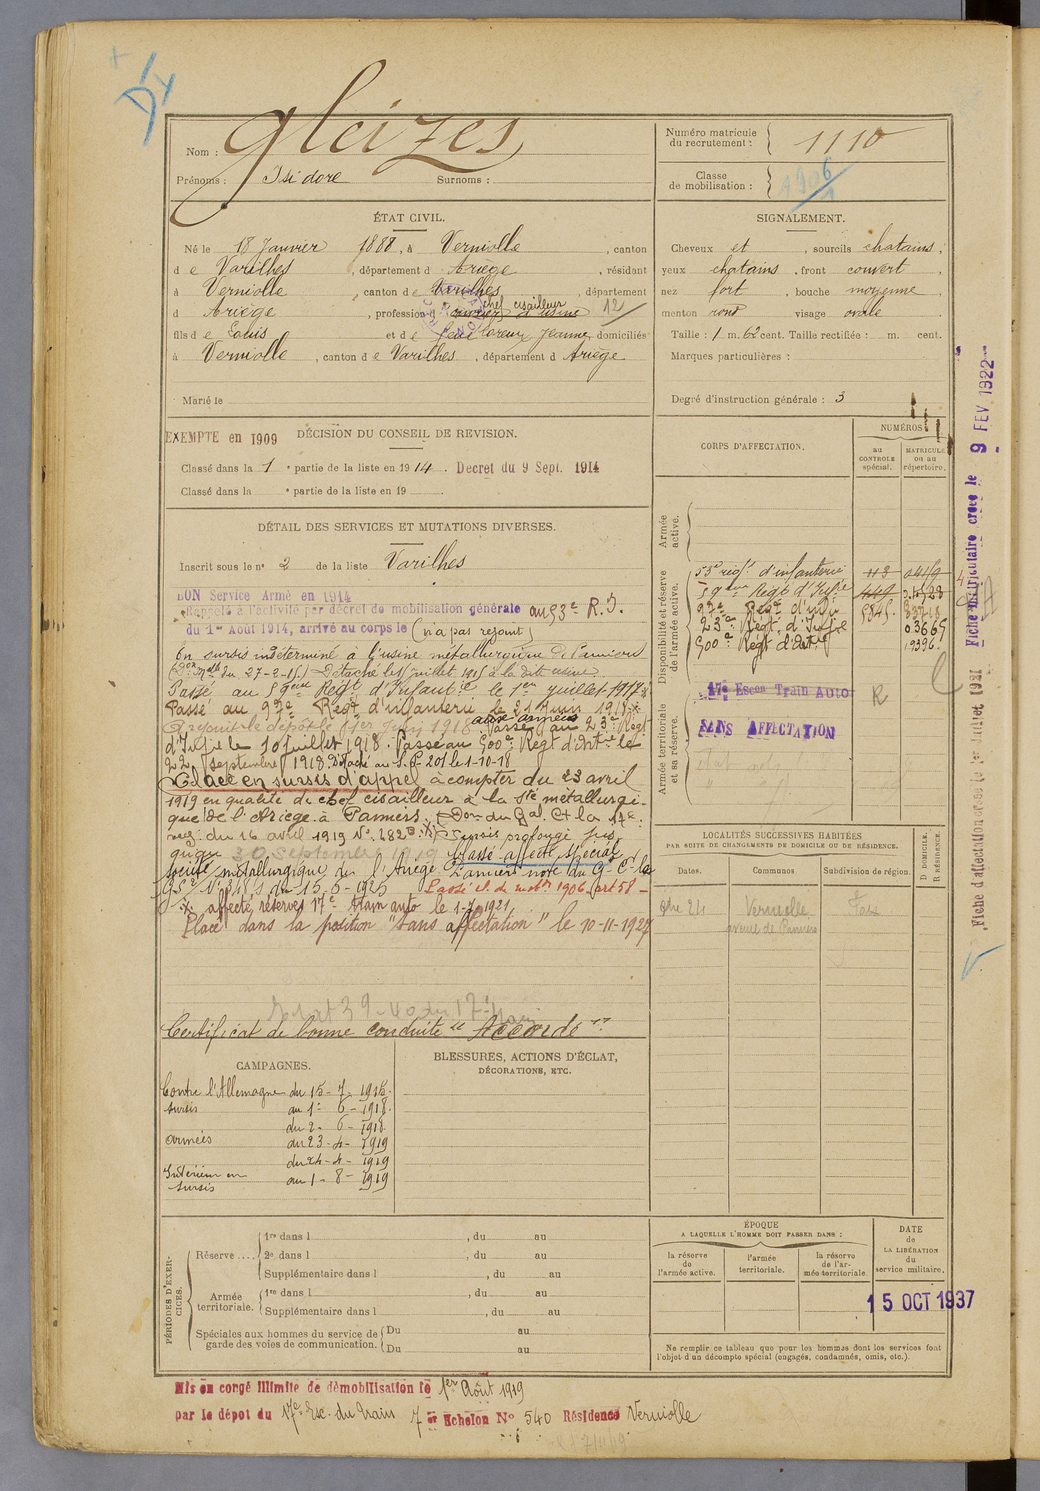 Nom : Gleizes
Prénoms : Isidore Surnoms :
Numéro matricule du recrutement : 1110
Classe de mobilisation : 1906
ÉTAT CIVIL.
Né le 18 Janvier 1888, à Verniolle, canton
d e Varilhes, département d Ariège, résidant
à Verniolle, canton d e Varilhes, département
d Ariège, profession d ouvrier d'usine chef cisailleur 12
fils de Louis et de Laurens Jeanne domiciliés
à Verniolle, canton d e Varilhes, département d Ariège
Marié le
SIGNALEMENT.
Cheveux et, sourcils chatains,
yeux chatains, front couvert,
nez fort, bouche moyenne
menton rond visage ovale
Taille : 1 m. 62 cent. Taille rectifiée : m. cent.
Marques particulières :
Degré d'instruction générale : 3
EXEMPTE en 1909 DÉCISION DU CONSEIL DE REVISION.
Classé dans la 1e partie de la liste en 1914. Decret du 9 Sept. 1914
Classé dans la e partie de la liste en 19
DÉTAIL DES SERVICES ET MUTATIONS DIVERSES.
Inscrit sous le no 2 de la liste Varilhes
BON Service Armé en 1914
Rappelé à l'activité par décret de mobilisation générale au 53e R.I.
du 1er Août 1914, arrivé au corps le (n'a pas rejoint)
En sursis indéterminé à l'usine métallurgique de Pamiers
(Don Melle du 27-2-15) Détaché le 15 juillet 1915 à la dite usine
Passé au 59eme Regt d'Infantie le 1er juillet 1917
Passé au 92e Regt d'infanterie le 21 Juin 1918
aux armées Passé au 23e Regt
d'Infie le 10 Juillet 1918. Passé au 500e Regt d'Artie le
22 septembre 1918 Détaché au 1-10-18
Placé en sursis d'appel à compter du 23 avril
1919 en qualité de chef cisailleur à la Sté métallurgi-
que de l'Ariège à Pamiers. Don du Gal. Ct la 17e
reg. du 16 avril 1919 No 282 Sursis prolongé jus
qu'au 30 septembre 1919 Classé affecté spécial
société métallurgique de l'Ariège Pamiers note du G C la
du 15-5-1925 Passé cl. de mobon 1906 art 58
affecté réserves 17e Train auto le 1-7-1921
Placé dans la position "sans affectation" le 10-11-1927
Certificat de bonne conduite "Accordé"
CORPS D'AFFECTATION.
NUMÉROS
au CONTROLE spécial.
MATRICULE ou au répertoire.
Armée active.
Disponibilité et réserve de l'armée active.
53e régt d'infanterie 113 0419
59eme Regt d'Infie 449
92e Regt d'infie 5845
23e Regt d'Infie 03669
500e Regt d'Artie 19396
Armée territoriale et sa réserve.
17e Escon Train Auto R
SANS AFFECTATION
LOCALITÉS SUCCESSIVES HABITÉES
PAR SUITE DE CHANGEMENTS DE DOMICILE OU DE RÉSIDENCE.
Dates. Communes Subdivision de région. D DOMICILE. R RÉSIDENCE.
Verniolle Foix
avenue de Pamiers
CAMPAGNES.
Contre l'Allemagne du 15-7-1915
sursis au 1-6-1918
du 2-6-1918
armées au 23-4-1919
du 24-4-1919
Intérieur en sursis au 1-8-1919
BLESSURES, ACTIONS D'ÉCLAT,
DÉCORATIONS, ETC.
PÉRIODES D'EXERCICES.
Réserve....
1re dans l , du au
2e dans l , du au
Supplémentaire dans l , du au
Armée territoriale.
1re dans l , du au
Supplémentaire dans l , du au
Spéciales aux hommes du service de garde des voies de communication.
Du au
Du au
ÉPOQUE
A LAQUELLE L'HOMME DOIT PASSER DANS :
la réserve de l'armée active.
l'armée territoriale.
la réserve de l'armée territoriale.
DATE DE LA LIBÉRATION du service militaire.
15 OCT 1937
Ne remplir ce tableau que pour les hommes dont les services font
l'objet d'un décompte spécial (engagés, condamnés, omis, etc.).
Mis en congé illimité de démobilisation le 1er Août 1919
par le dépot du 17e Esc. du Train 7e Echelon No 540 Résidence Verniolle
Fiche matriculaire créée le 9 FEV 1922
Fiche d'affectation créée le 1er Juillet 1921